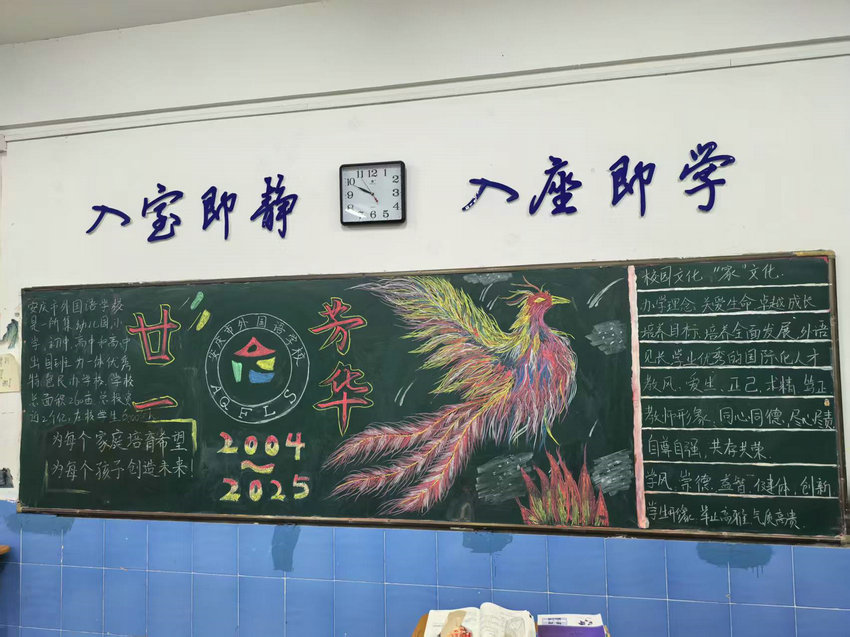 入室即静
入座即学
11 12 1
10 2
9 3
8 4
7 6 5
安庆市外国语学校
是一所集幼儿园,小
学,初中,高中和高中
出国班为一体优秀
特色民办学校,学校
为每个家庭培育希望
为每个孩子创造未来!
廿一
安庆市外国语学校
AQFLS
芳华
2004
~
2025
校园文化:“家”文化.
办学理念:关爱生命,卓越成长
培养目标:培养全面发展、外语
见长、学业优秀的国际化人才
教风:安生、正己、求精、笃正
教师形象:同心同德,尽心尽责
自尊自强、共存共荣.
学风:崇德、益智、健体、创新
学生形象:举止高雅,气质高贵